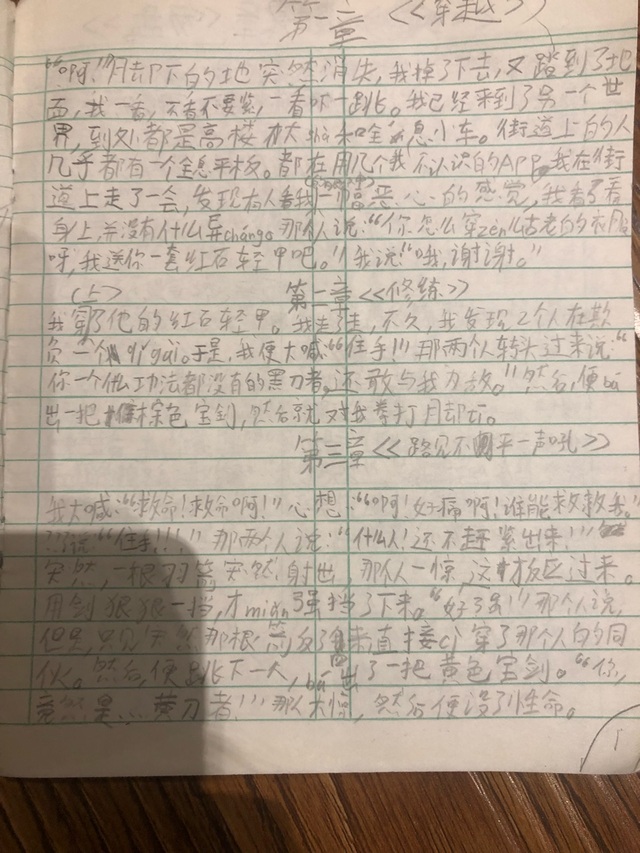 第一章 《穿越》
“啊!”脚下的地突然消失,我掉了下去,又踏到了地
面,我一看,不看不要紧,一看吓一跳。我已经来到了另一个世
界,到处都是高楼大 和全息小车。街道上的人
几乎都有一个全息平板。都在用几个我不认识的APP。我在街
道上走了一会,发现有人看我一幅恶心的感觉,我看了看
身上,并没有什么异cháng。那人说:“你怎么穿zèn么古老的衣服
呀,我送你一套红石轻甲吧。”我说:“哦,谢谢。”
(上) 第二章《修练》
我穿了他的红石轻甲。我走了走,不久,我发现2个人在欺
负一个qǐ gài。于是,我便大喊:“住手!”那两个人转头过来说:“
你一个 功法都没有的黑刃者,还敢与我为敌。”然后,便bá
出一把棕色宝剑,然后就对我拳打脚踢。
第三章《路见不平一声吼》
我大喊:“救命!救命啊!”心想:“啊!好痛啊!谁能救救我。”
???说:“住手!!!”那两个人说:“什么人!还不赶紧出来!”
突然,一根羽箭突然射出,那人一惊,这 反过来。
用剑狠狠一挡,才miǎn强挡了下来。“好了强!”那个人说,
但是,只见 然那根箭反了 来直接cì穿了那个人的同
伙。然后,便跳下一人,bá出了一把黄色宝剑。“你,
竟然是……黄刃者!”那人大惊,然后便没了性命。
1